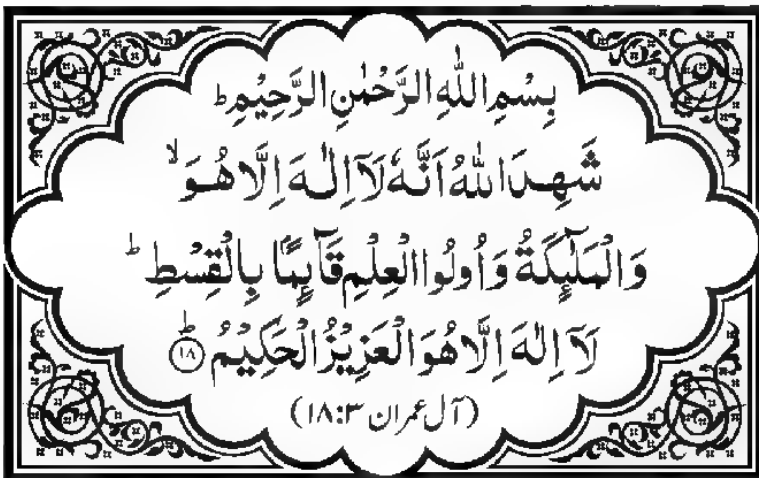 بِسْمِ اللّٰهِ الرَّحْمٰنِ الرَّحِیْمِ ؕ
شَهِدَ اللّٰهُ اَنَّهٗ لَاۤ اِلٰهَ اِلَّا هُوَ ۙ
وَ الْمَلٰٓىِٕكَةُ وَ اُولُوا الْعِلْمِ قَآىِٕمًۢا بِالْقِسْطِ ؕ
لَاۤ اِلٰهَ اِلَّا هُوَ الْعَزِیْزُ الْحَكِیْمُ ؕ ﴿۱۸﴾
(آل عمران ۱۸:۳)